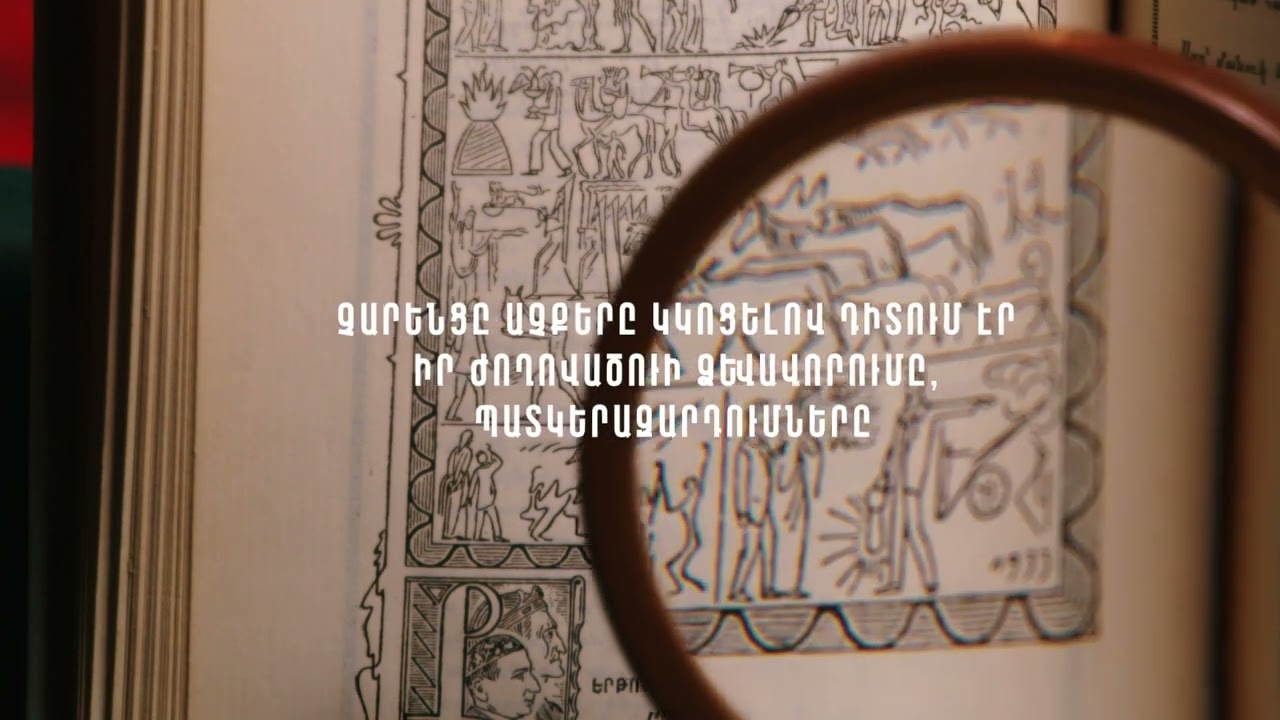 ՉԱՐԵՆՑԸ ԱՉՔԵՐԸ ԿԿՈՑԵԼՈՎ ԴԻՏՈՒՄ ԷՐ
ԻՐ ԺՈՂՈՎԱԾՈՒԻ ՁԵՎԱՎՈՐՈՒՄԸ,
ՊԱՏԿԵՐԱԶԱՐԴՈՒՄՆԵՐԸ
1933